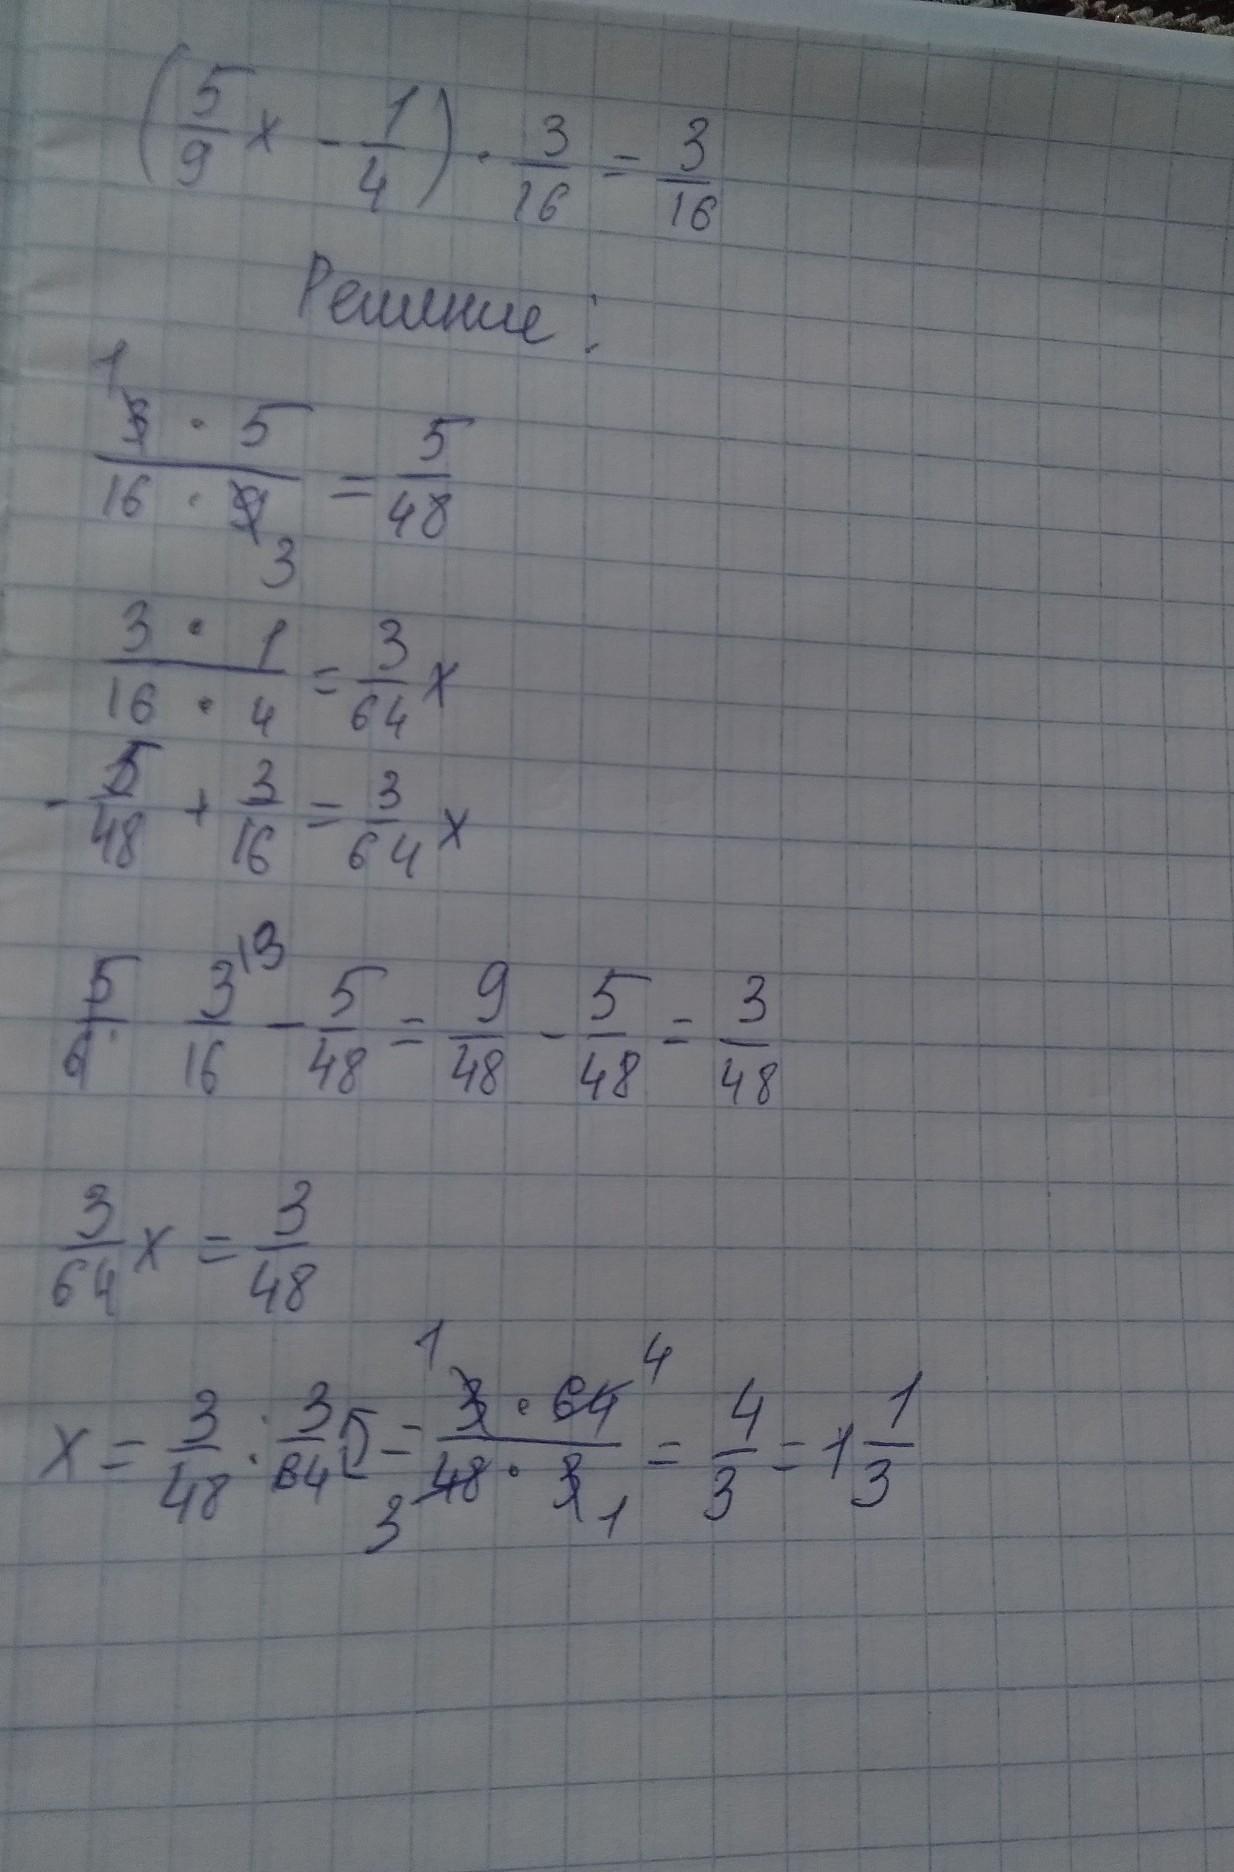 (5/9 x - 1/4) · 3/16 = 3/16
Решение:
3 · 5 / 16 · 9 = 5/48
1
3
3 · 1 / 16 · 4 = 3/64 x
- 5/48 + 3/16 = 3/64 x
3/16 - 5/48 = 9/48 - 5/48 = 3/48
3/64 x = 3/48
x = 3/48 : 3/64 = 3 · 64 / 48 · 3 = 4/3 = 1 1/3
1 4
3 1